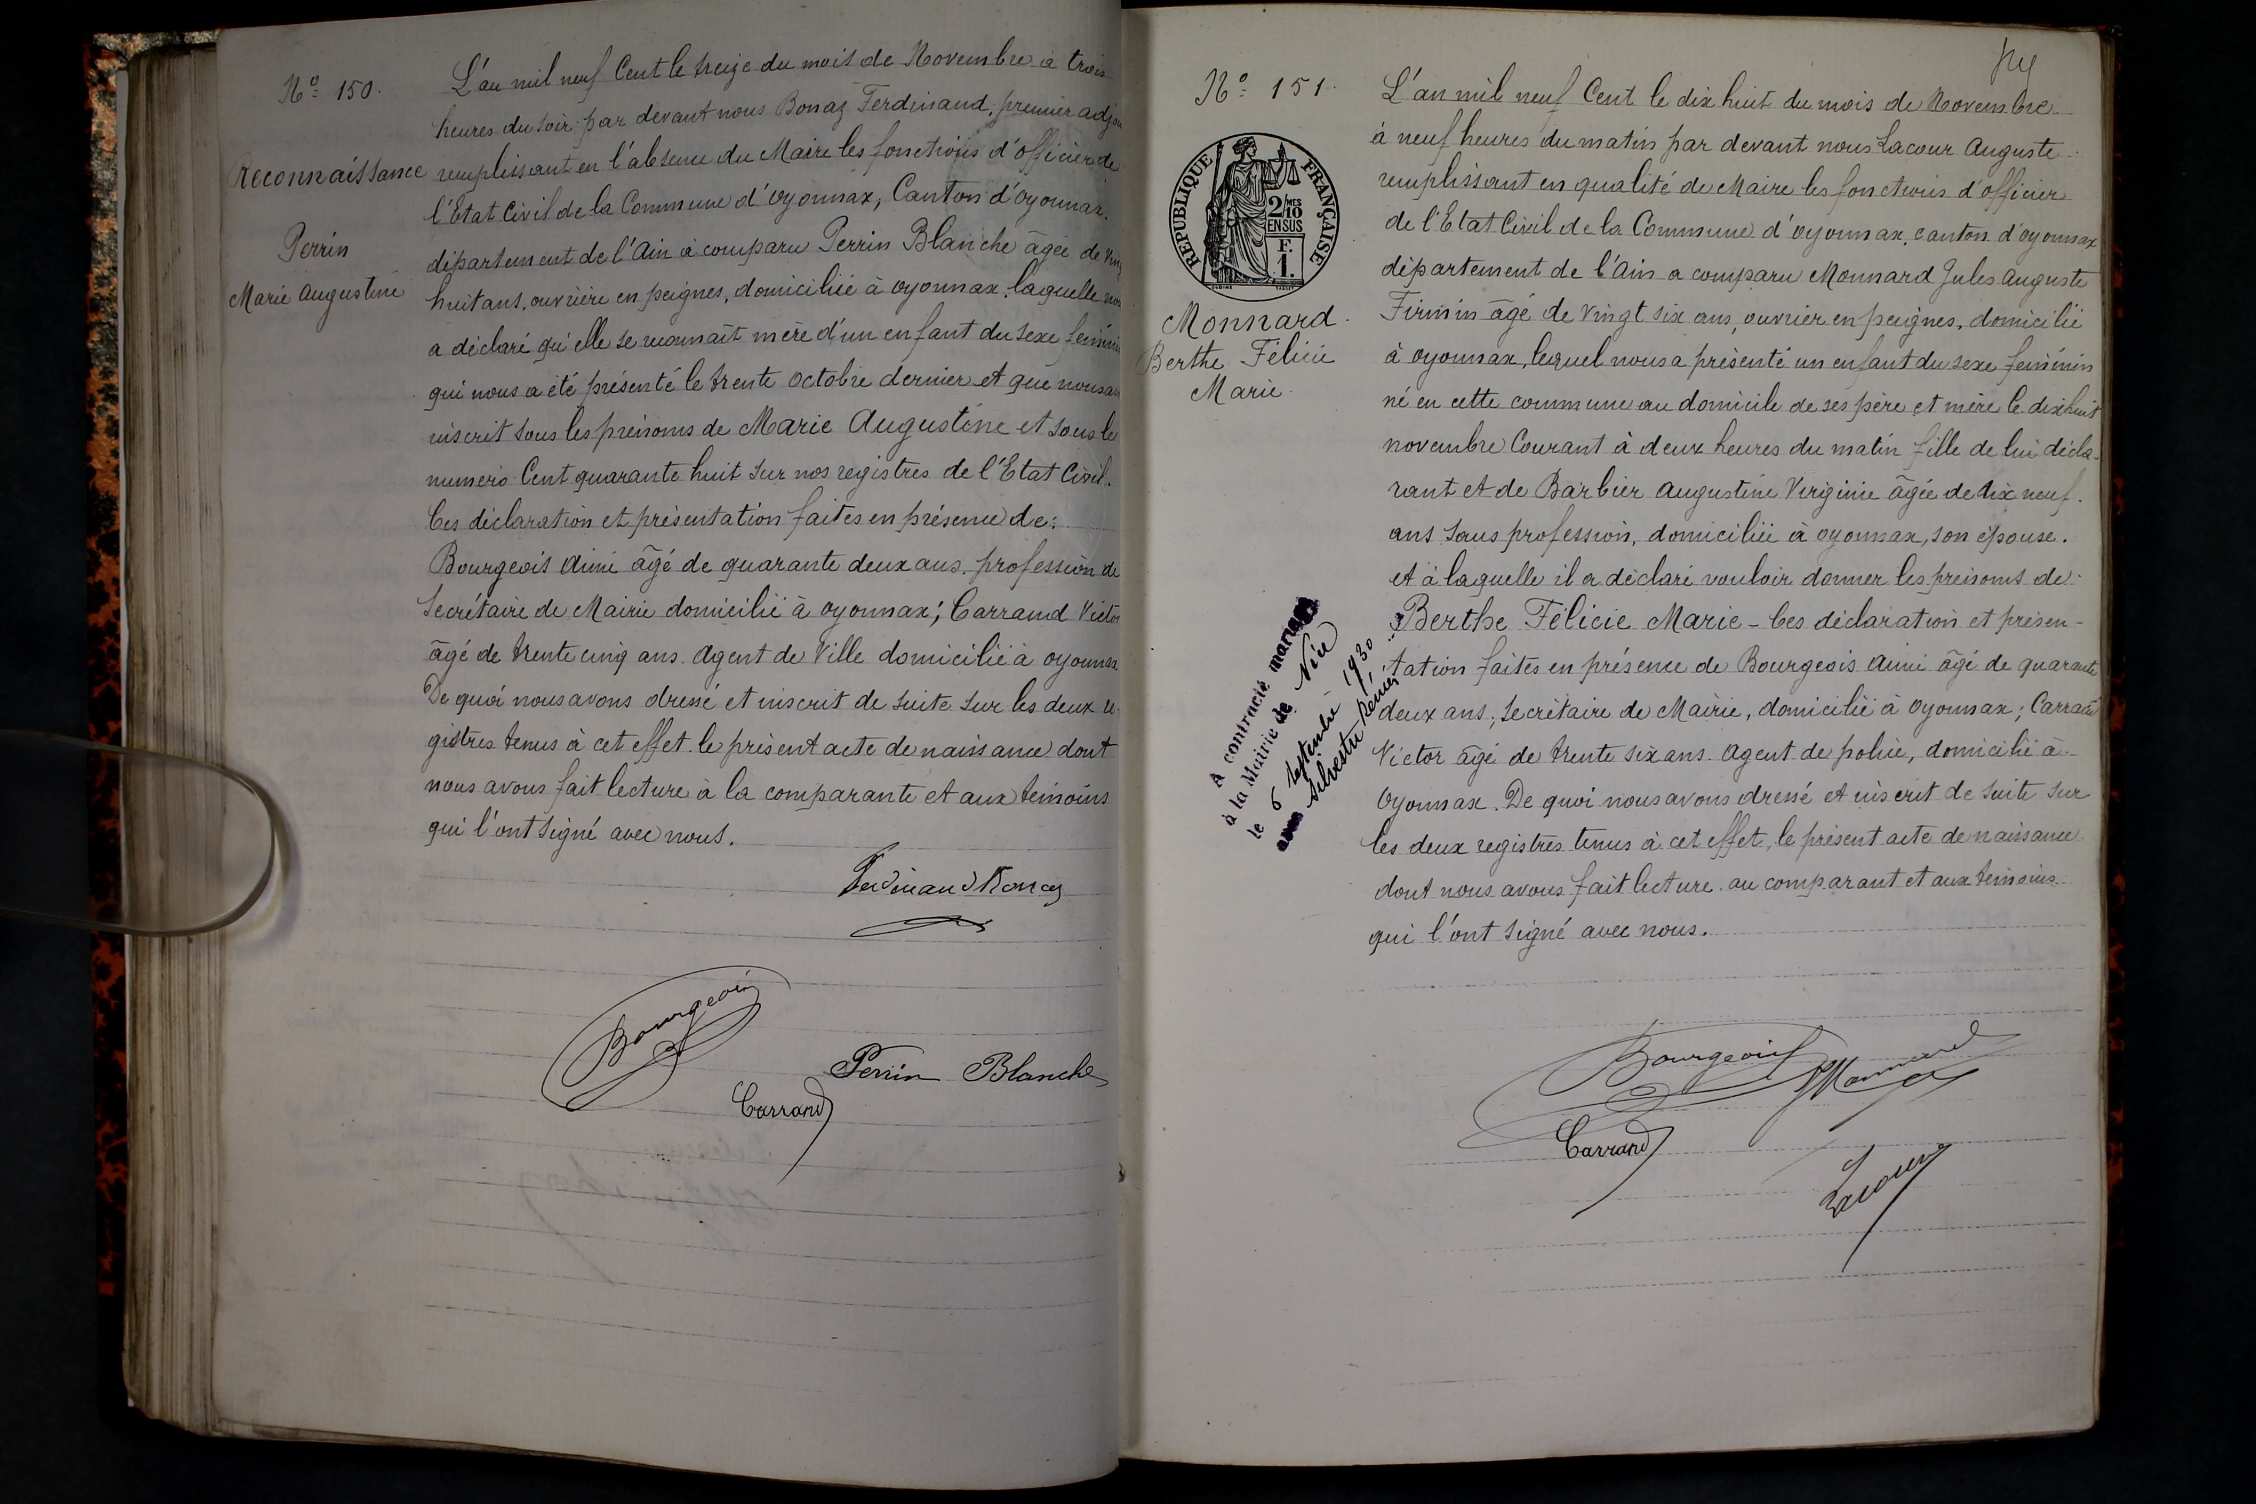 Nº 150.
Reconnaissance
Perrin
Marie Augustine
L'an mil neuf Cent le treize du mois de Novembre à trois
heures du soir par devant nous Bonaz Ferdinand, premier adjoi
remplissant en l'absence du Maire les fonctions d'officier de
l'Etat Civil de la Commune d'Oyonnax, Canton d'Oyonnax.
département de l'Ain a comparu Perrin Blanche âgée de vingt
huit ans, ouvrière en peignes, domiciliée à Oyonnax, laquelle nous
a déclaré qu'elle se reconnaît mère d'un enfant du sexe féminin
qui nous a été présenté le trente Octobre dernier et que nous av
inscrit sous les prénoms de Marie Augustine et sous le
numéro Cent quarante huit sur nos registres de l'Etat Civil.
Ces déclaration et présentation faites en présence de:
Bourgeois Aimé âgé de quarante deux ans. profession de
Secrétaire de Mairie domicilié à Oyonnax; Carrand Victor
âgé de trente cinq ans Agent de Ville domicilié à Oyonnax
De quoi nous avons dressé et inscrit de suite sur les deux re
gistres tenus à cet effet le présent acte de naissance dont
nous avons fait lecture à la comparante et aux témoins
qui l'ont signé avec nous.
Ferdinand Bonaz
Bourgeois
Perrin Blanche
Carrand
Nº 151.
REPUBLIQUE FRANÇAISE
2/10 MES
EN SUS
F.
1.
Monnard
Berthe Félicie
Marie
A contracté mariage
à la Mairie de Nice
le 6 septembre 1930
avec Silvestre
L'an mil neuf Cent le dix huit du mois de Novembre
à neuf heures du matin par devant nous Lacour Auguste
remplissant en qualité de Maire les fonctions d'officier
de l'Etat Civil de la Commune d'Oyonnax, canton d'Oyonnax
département de l'Ain a comparu Monnard Jules Auguste
Firmin âgé de vingt six ans, ouvrier en peignes, domicilié
à Oyonnax, lequel nous a présenté un enfant du sexe féminin
né en cette commune au domicile de ses père et mère le dix huit
novembre Courant à deux heures du matin fille de lui décla-
rant et de Barbier Augustine Virginie âgée de dix neuf
ans sans profession, domiciliée à Oyonnax, son épouse.
et à laquelle il a déclaré vouloir donner les prénoms de
Berthe Félicie Marie - Ces déclaration et présen-
tation faites en présence de Bourgeois Aimé âgé de quarante
deux ans, Secrétaire de Mairie, domicilié à Oyonnax; Carrand
Victor âgé de trente six ans Agent de police, domicilié à
Oyonnax. De quoi nous avons dressé et inscrit de suite sur
les deux registres tenus à cet effet, le présent acte de naissance
dont nous avons fait lecture au comparant et aux témoins
qui l'ont signé avec nous.
Bourgeois
Monnard
Carrand
Lacour